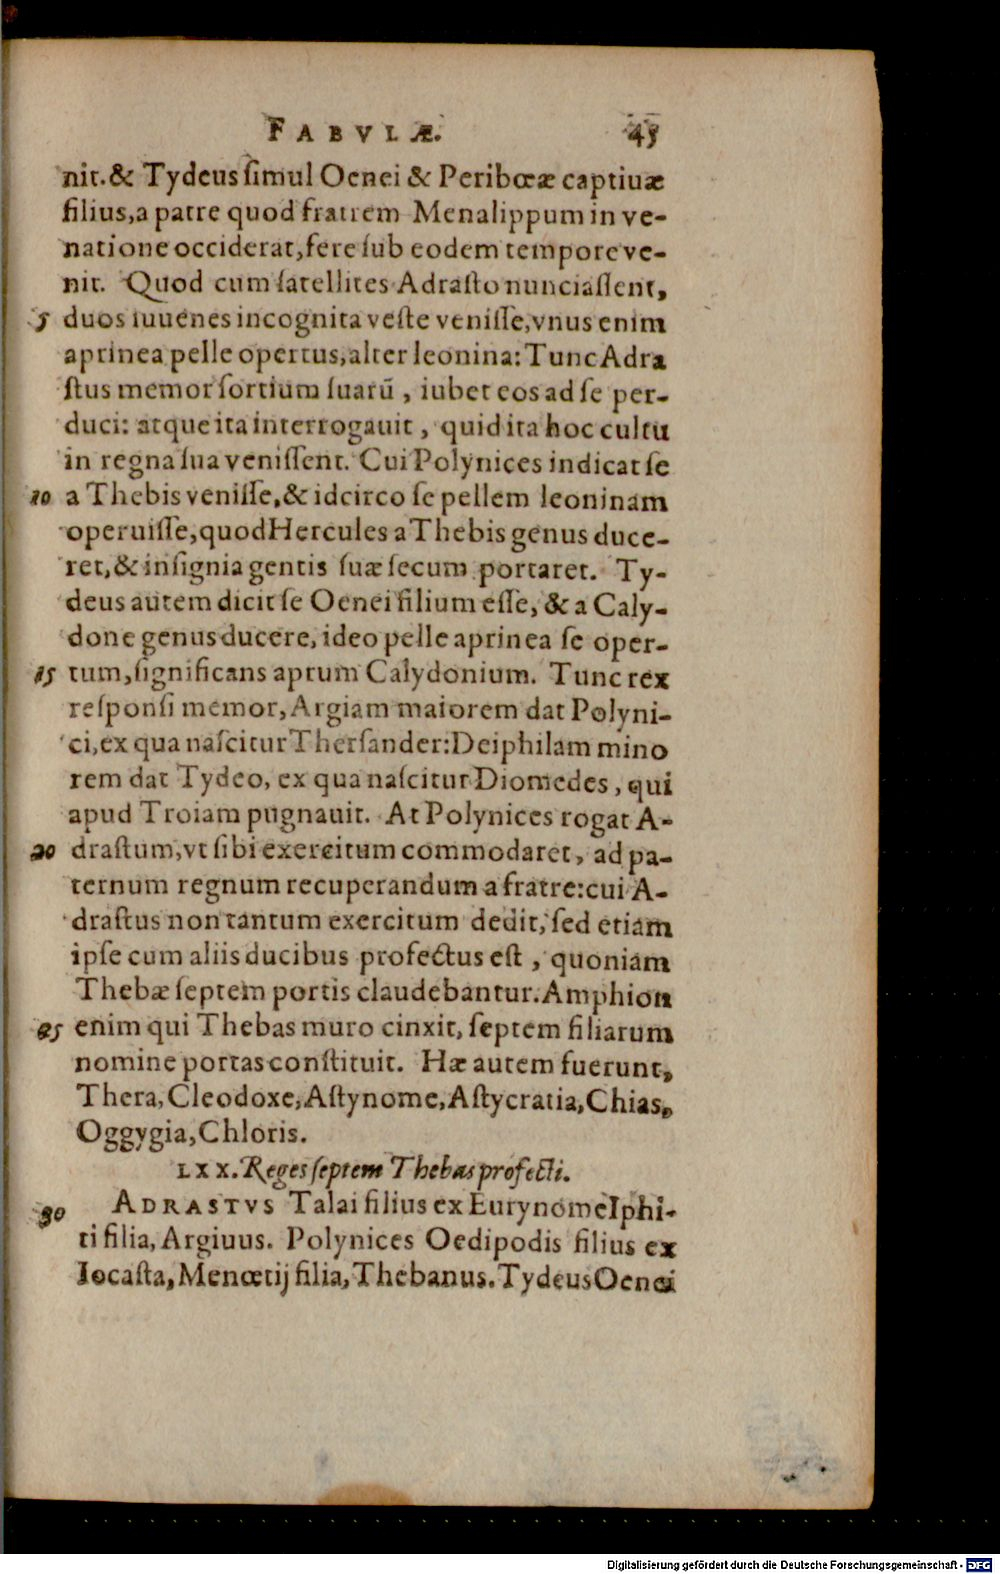 FABVLÆ. 45
nit. & Tydeus simul Oenei & Peribœæ captiuæ
filius, a patre quod fratrem Menalippum in ve-
natione occiderat, fere sub eodem tempore ve-
nit. Quod cum satellites Adrasto nunciassent,
5 duos iuuenes incognita veste venisse, vnus enim
aprinea pelle opertus, alter leonina: Tunc Adra
stus memor sortium suarū, iubet eos ad se per-
duci: atque ita interrogauit, quid ita hoc cultu
in regna sua venissent. Cui Polynices indicat se
10 a Thebis venisse, & idcirco se pellem leoninam
operuisse, quod Hercules a Thebis genus duce-
ret, & insignia gentis suæ secum portaret. Ty-
deus autem dicit se Oenei filium esse, & a Caly-
done genus ducere, ideo pelle aprinea se oper-
15 tum, significans aprum Calydonium. Tunc rex
responsi memor, Argiam maiorem dat Polyni-
ci, ex qua nascitur Thersander: Deiphilam mino
rem dat Tydeo, ex qua nascitur Diomedes, qui
apud Troiam pugnauit. At Polynices rogat A-
20 drastum, vt sibi exercitum commodaret, ad pa-
ternum regnum recuperandum a fratre: cui A-
drastus non tantum exercitum dedit, sed etiam
ipse cum aliis ducibus profectus est, quoniam
Thebæ septem portis claudebantur. Amphion
25 enim qui Thebas muro cinxit, septem filiarum
nomine portas constituit. Hæ autem fuerunt,
Thera, Cleodoxe, Astynome, Astycratia, Chias,
Oggygia, Chloris.
LXX. Reges septem Thebas profecti.
30 ADRASTVS Talai filius ex Eurynome Iphi-
ti filia, Argiuus. Polynices Oedipodis filius ex
Iocasta, Menœtij filia, Thebanus. Tydeus Oenei
Digitalisierung gefördert durch die Deutsche Forschungsgemeinschaft - DFG